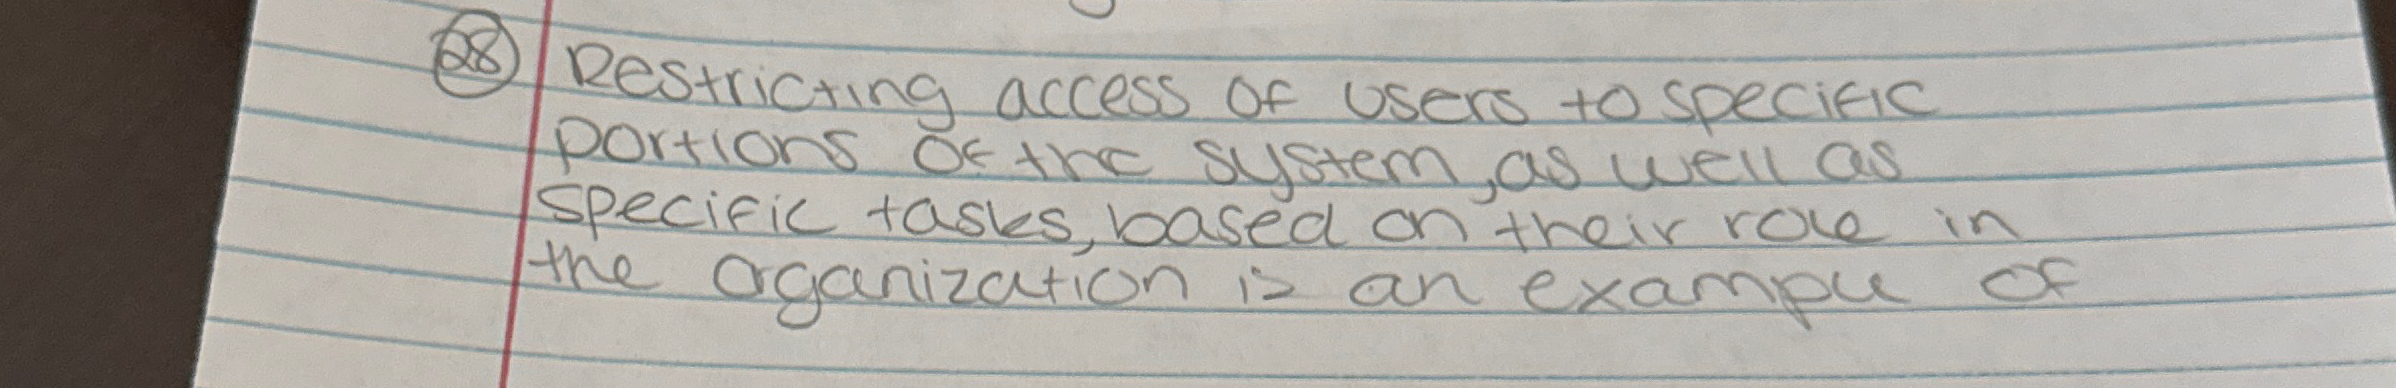 28 Restricting access of users to specific
portions of the system, as well as
specific tasks, based on their role in
the organization is an example of